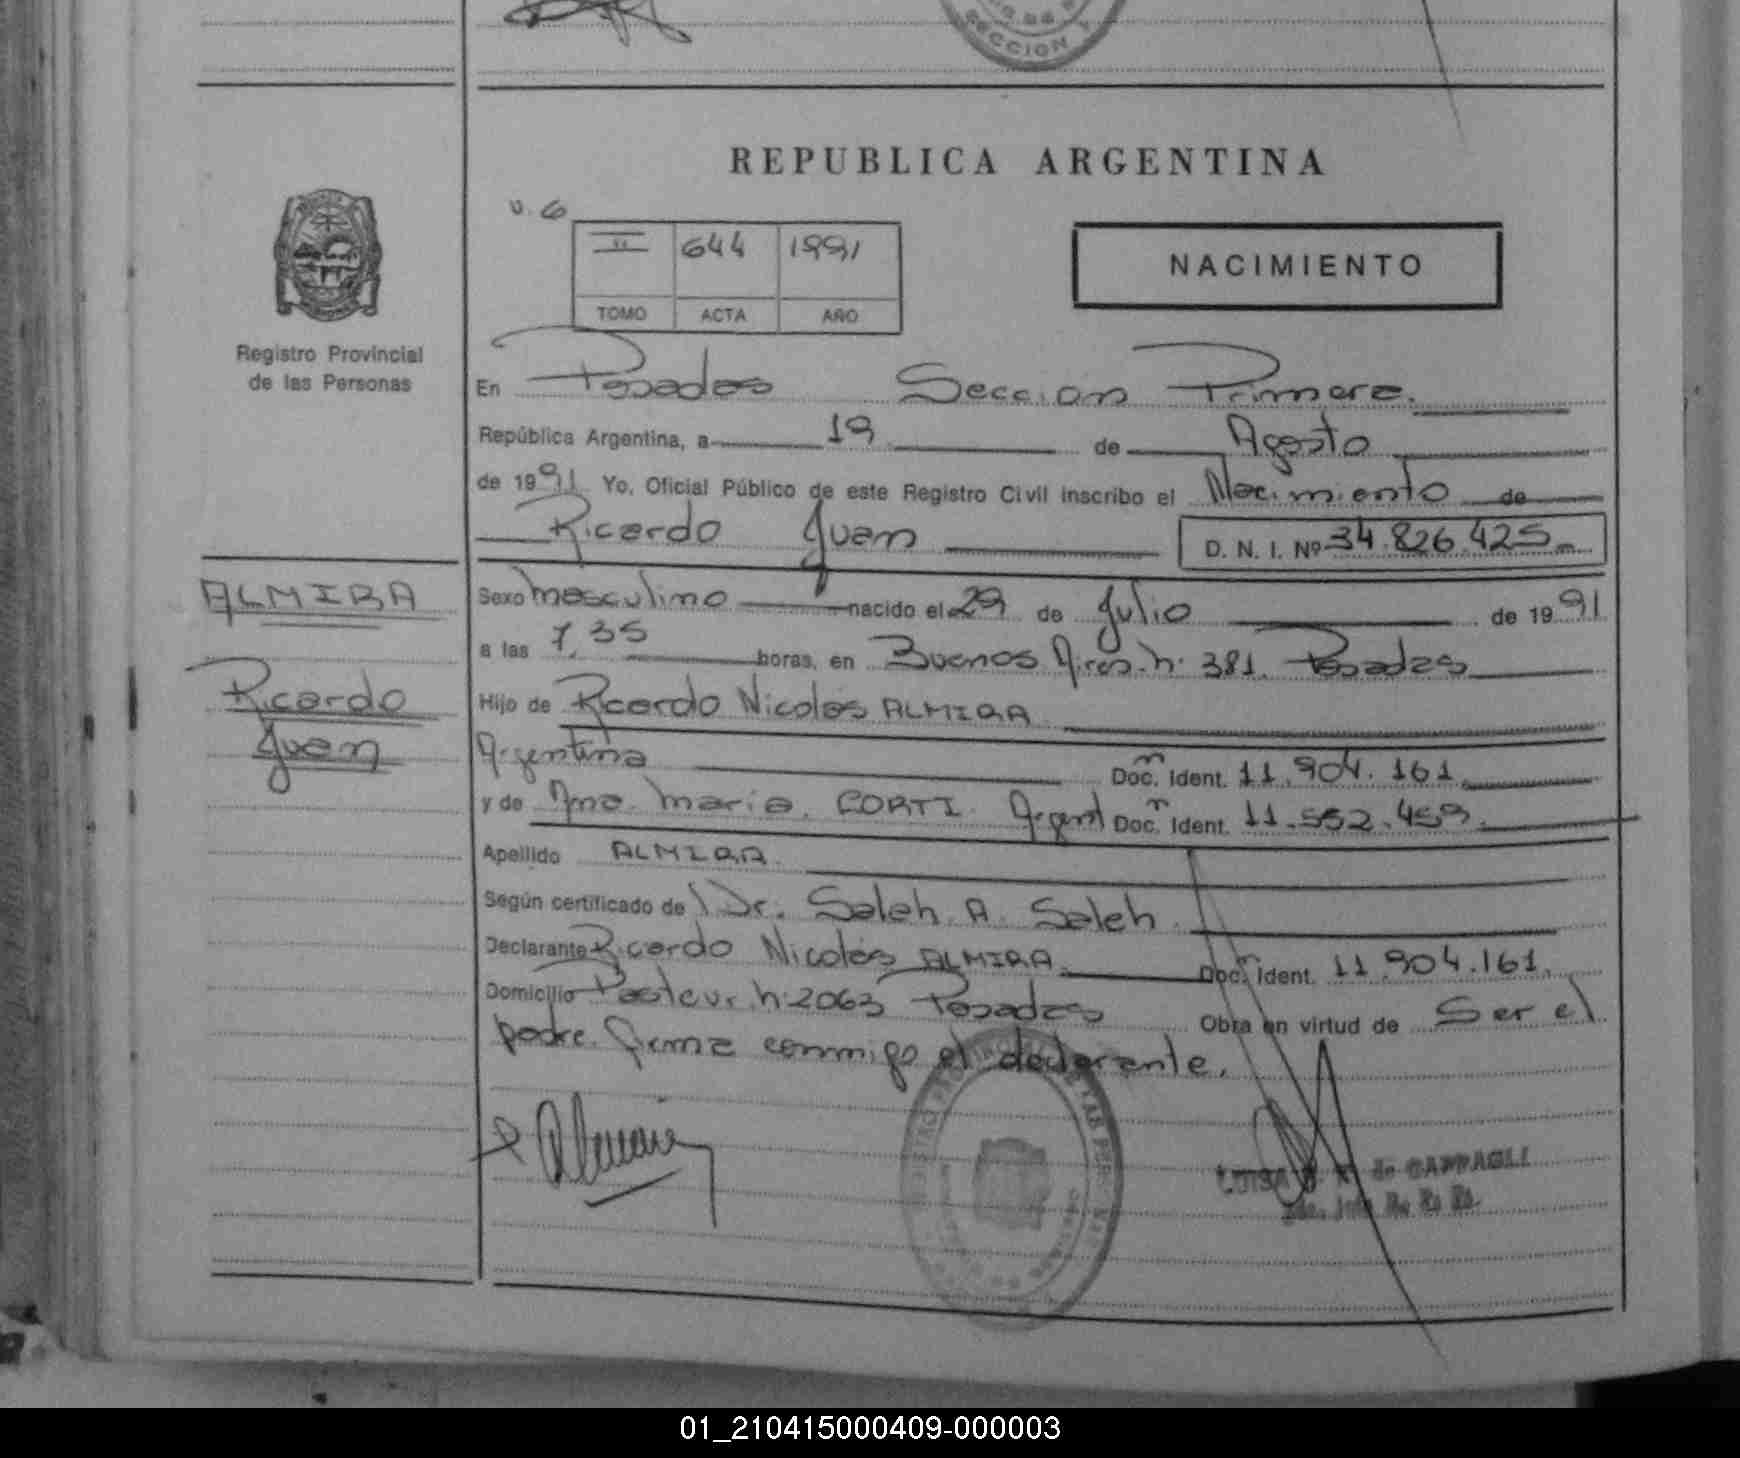 SECCION 1
REPUBLICA ARGENTINA
v. 6
II 644 1991
TOMO ACTA AÑO
NACIMIENTO
Registro Provincial
de las Personas
En Posadas Seccion Primera.
República Argentina, a 19 de Agosto
de 1991 Yo, Oficial Público de este Registro Civil inscribo el Nacimiento de
Ricardo Juan D. N. I. Nº 34.826.425
ALMIRA
Ricardo
Juan
Sexo masculino nacido el 29 de Julio de 1991
a las 7,35 horas, en Buenos Aires. n. 381. Posadas
Hijo de Ricardo Nicolás ALMIRA
Argentina Doc. Ident. 11.904.161
y de Ana María. CORTI. Argent Doc. Ident. 11.552.459
Apellido ALMIRA
Según certificado de Dr. Saleh A. Saleh.
Declarante Ricardo Nicolás ALMIRA Doc. Ident. 11.904.161
Domicilio Pasteur. n. 2063 Posadas Obra en virtud de Ser el
padre. firma conmigo el declarante.
LUISA de
01_210415000409-000003